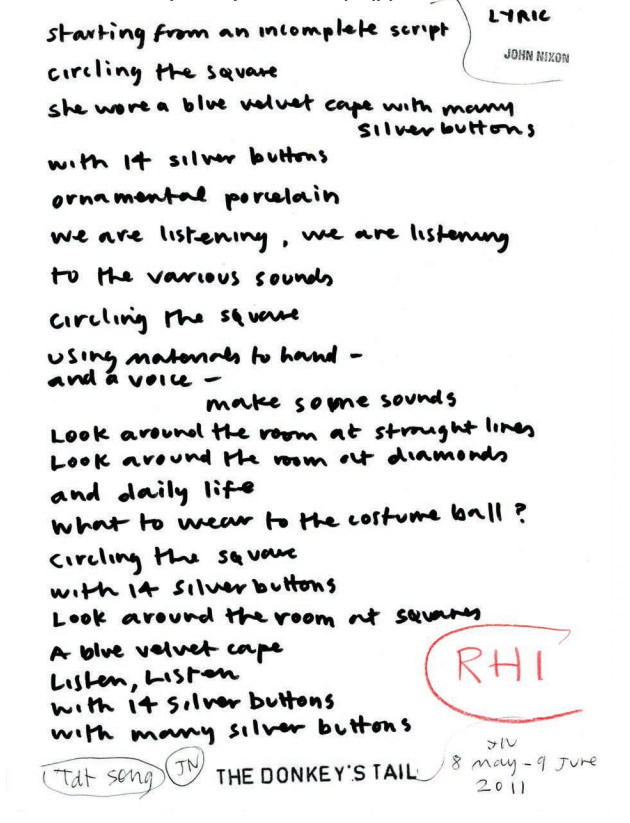 LYRIC
JOHN NIXON
starting from an incomplete script
circling the square
she wore a blue velvet cape with many
silver buttons
with 14 silver buttons
ornamental porcelain
we are listening, we are listening
to the various sounds
circling the square
using materials to hand –
and a voice –
make some sounds
Look around the room at straight lines
Look around the room at diamonds
and daily life
what to wear to the costume ball?
circling the square
with 14 silver buttons
Look around the room at squares
A blue velvet cape
Listen, Listen
with 14 silver buttons
with many silver buttons
RHI
Tdt song
JN
THE DONKEY'S TAIL
JN
8 may – 9 June
2011